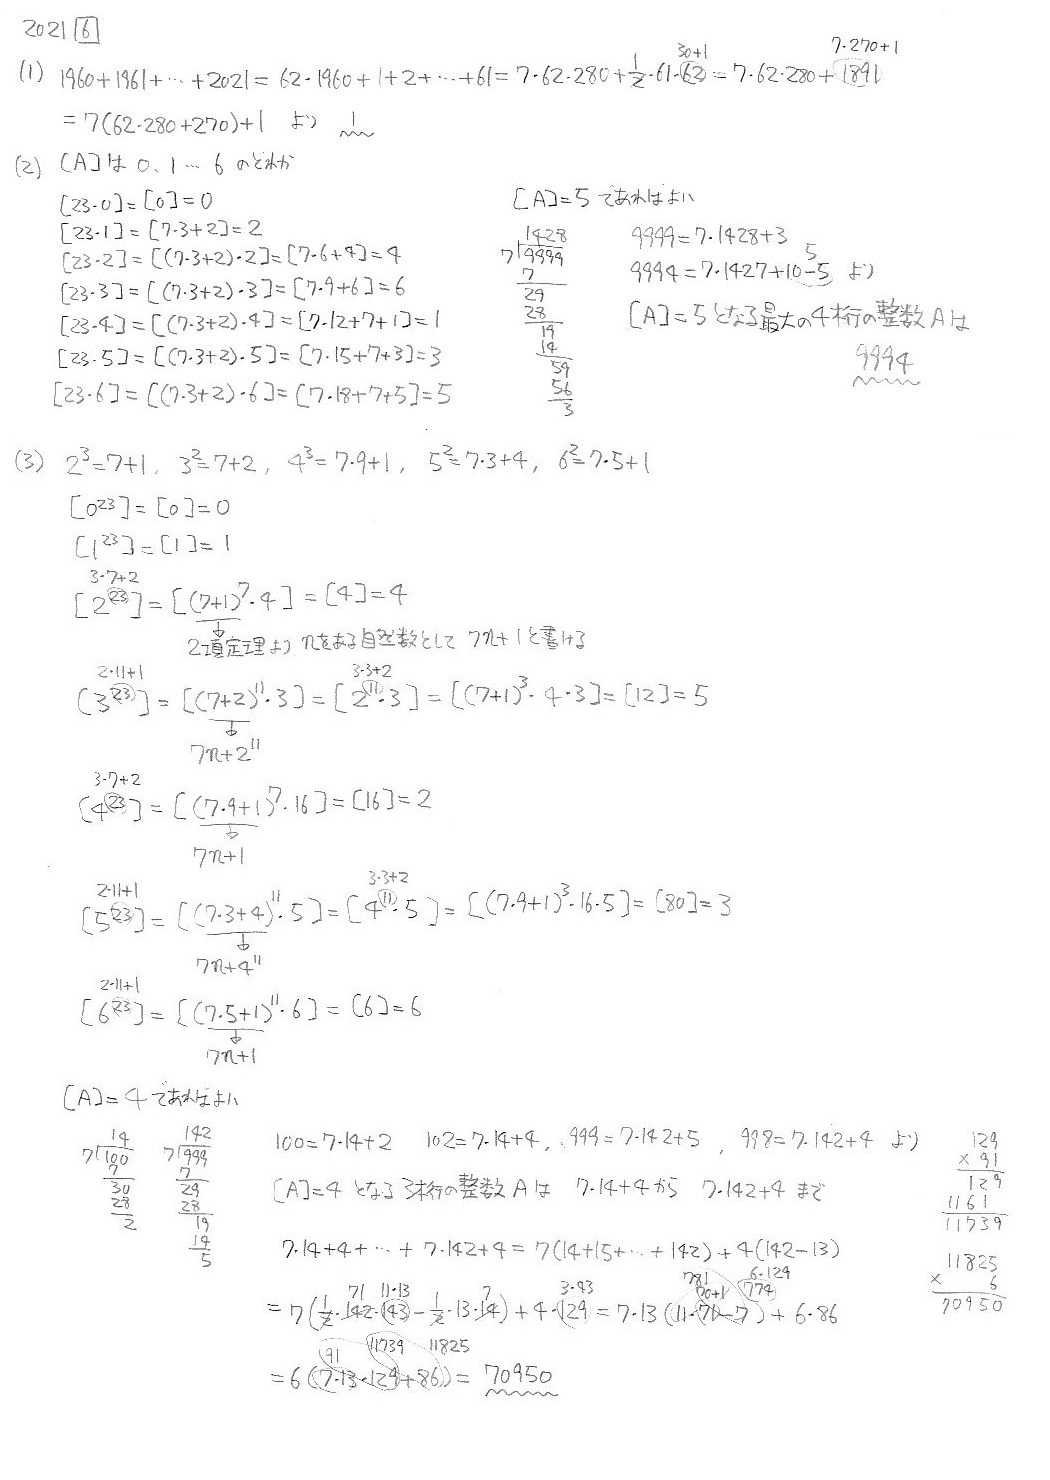 2021 6
30+1
7·270+1
(1) 1960+1961+…+2021=62·1960+1+2+…+61=7·62·280+1/2·61·62=7·62·280+1891
=7(62·280+270)+1 より 1
(2) [A]は 0, 1 … 6 のどれか
[23·0]=[0]=0
[23·1]=[7·3+2]=2
[23·2]=[(7·3+2)·2]=[7·6+4]=4
[23·3]=[(7·3+2)·3]=[7·9+6]=6
[23·4]=[(7·3+2)·4]=[7·12+7+1]=1
[23·5]=[(7·3+2)·5]=[7·15+7+3]=3
[23·6]=[(7·3+2)·6]=[7·18+7+5]=5
[A]=5 であればよい
1428
7)9999
7
29
28
19
14
59
56
3
9999=7·1428+3
5
9994=7·1427+10-5 より
[A]=5となる最大の4桁の整数Aは
9994
(3) 2³=7+1, 3²=7+2, 4³=7·9+1, 5²=7·3+4, 6²=7·5+1
[0²³]=[0]=0
[1²³]=[1]=1
3·7+2
[2²³]=[(7+1)⁷·4]=[4]=4
2項定理より nをある自然数として 7n+1と書ける
2·11+1
3·3+2
[3²³]=[(7+2)¹¹·3]=[2¹¹·3]=[(7+1)³·4·3]=[12]=5
7n+2¹¹
3·7+2
[4²³]=[(7·9+1)⁷·16]=[16]=2
7n+1
2·11+1
3·3+2
[5²³]=[(7·3+4)¹¹·5]=[4¹¹·5]=[(7·9+1)³·16·5]=[80]=3
7n+4¹¹
2·11+1
[6²³]=[(7·5+1)¹¹·6]=[6]=6
7n+1
[A]=4 であればよい
14
7)100
7
30
28
2
142
7)999
7
29
28
19
14
5
100=7·14+2 102=7·14+4, 999=7·142+5, 998=7·142+4 より
[A]=4 となる3桁の整数Aは 7·14+4から 7·142+4 まで
7·14+4+…+7·142+4=7(14+15+…+142)+4(142-13)
71 11·13 7 3·43 781 70+1 6·129 774
=7(1/2·142·143-1/2·13·14)+4·129=7·13(11·71-7)+6·86
91 11739 11825
=6(7·13·129+86)=70950
129
×91
129
1161
11739
11825
× 6
70950